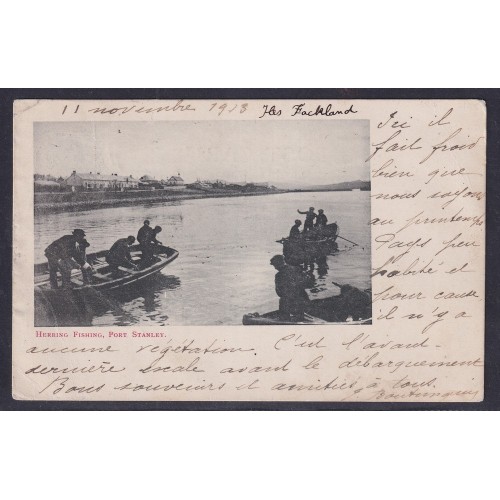 11 novembre 1913 Iles Fackland
Ici il
fait froid
bien que
nous soyons
au printemps
Pays peu
habité et
pour cause
il n'y a
HERRING FISHING, PORT STANLEY.
aucune végétation. C'est l'avant-
dernière escale avant le débarquement
Bons souvenirs et amitiés à tous.